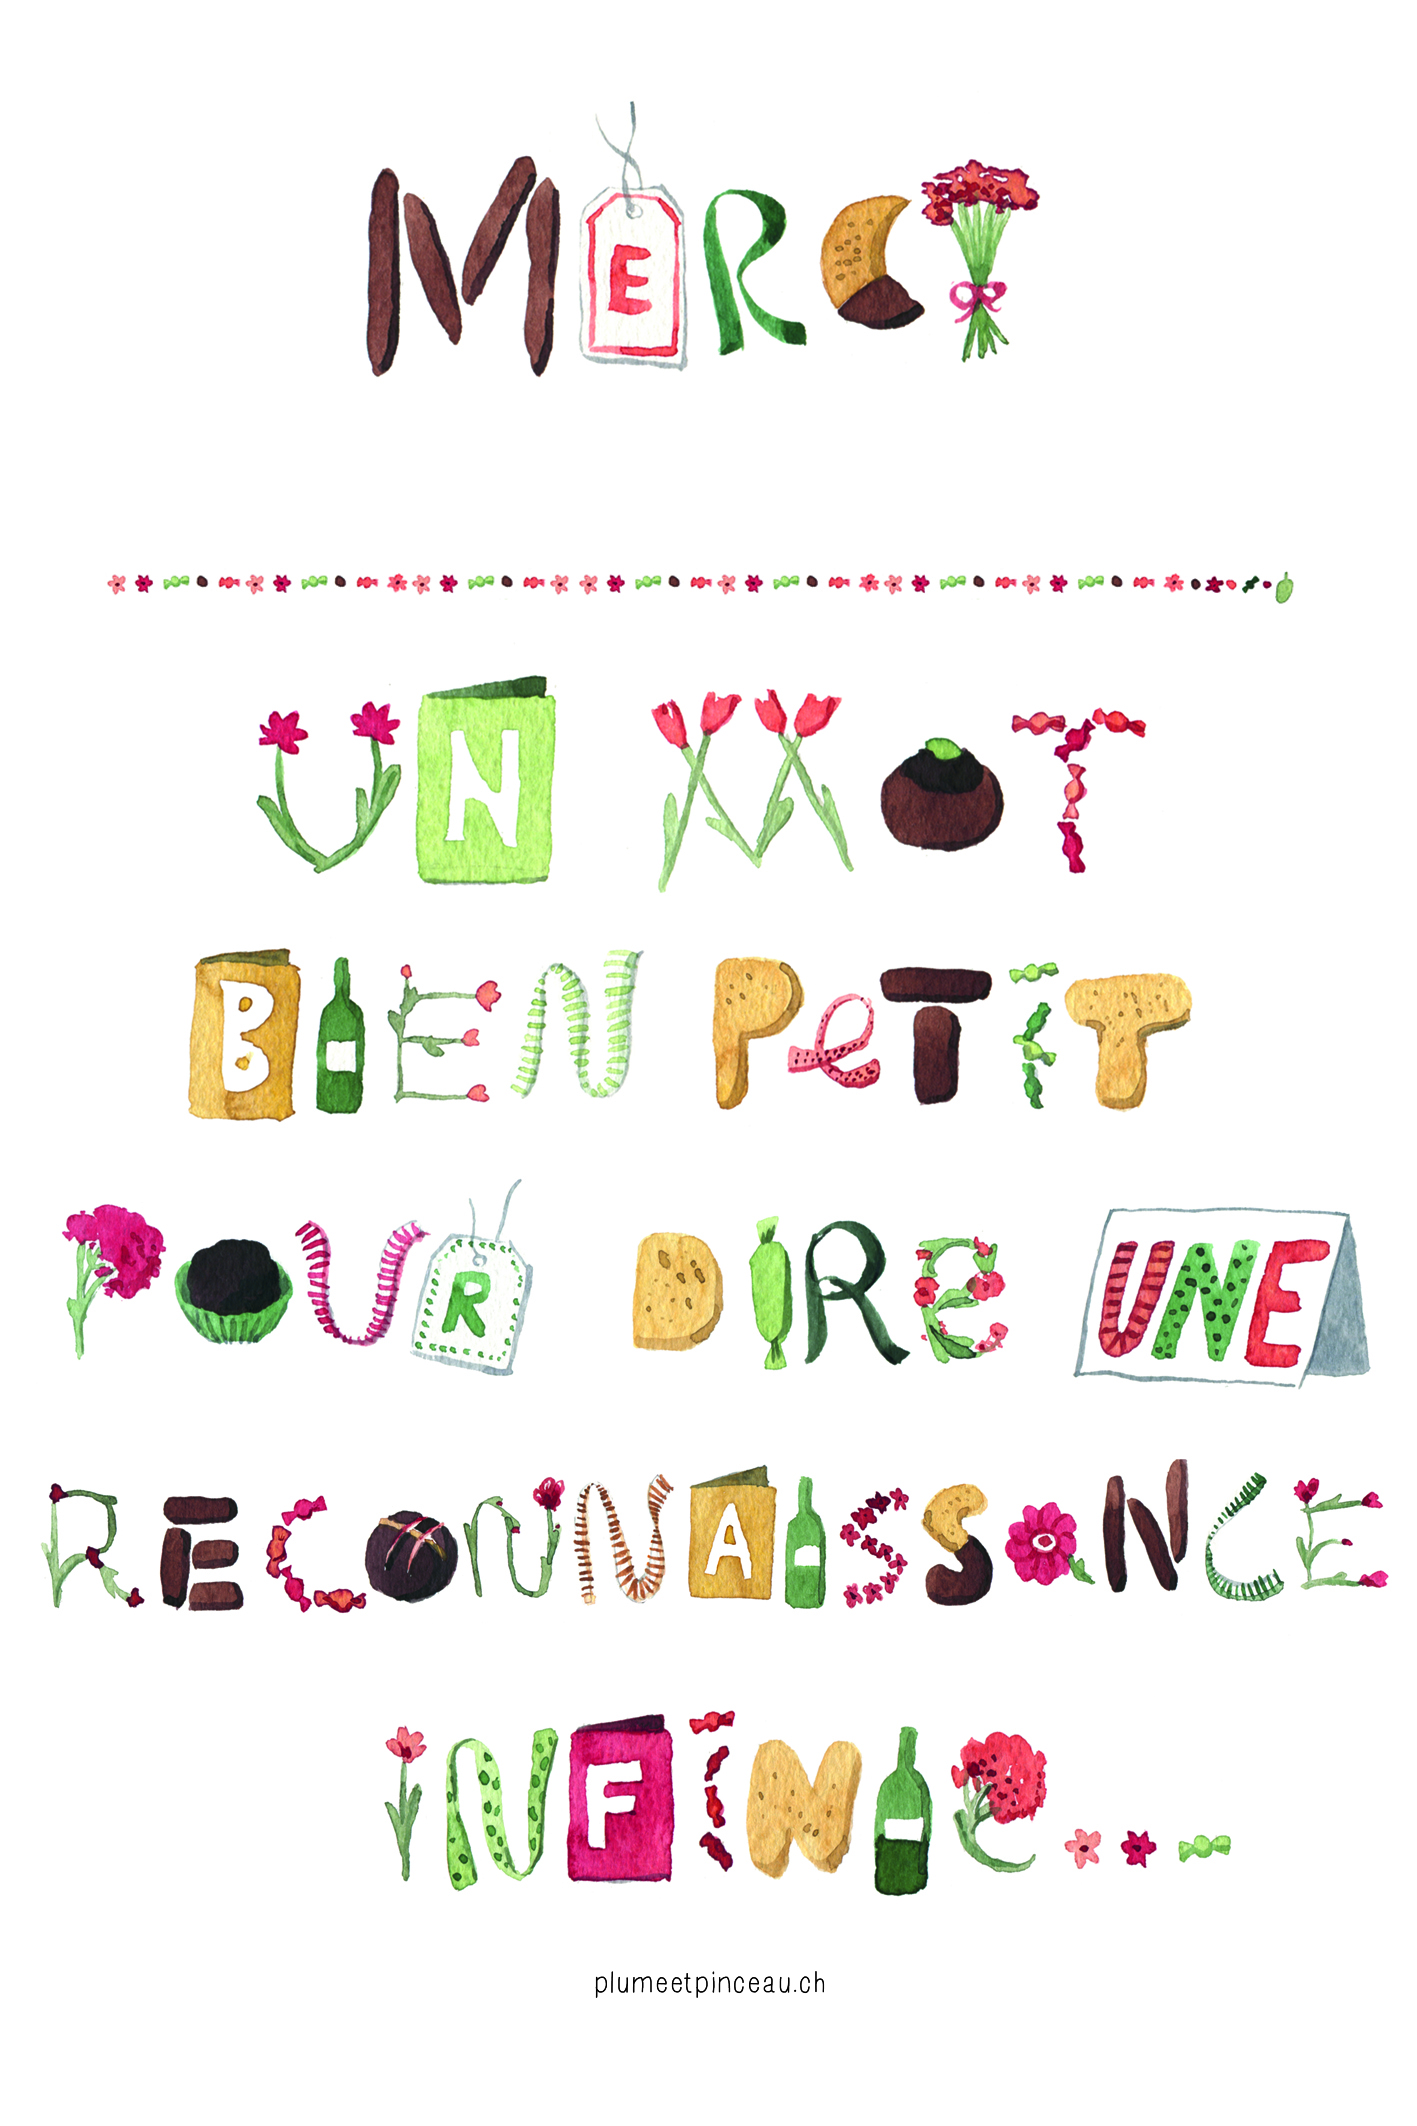 MERCI
UN MOT
BIEN PeTIT
POUR DIRE UNE
RECONNAISSaNCE
iNFINIe...
plumeetpinceau.ch